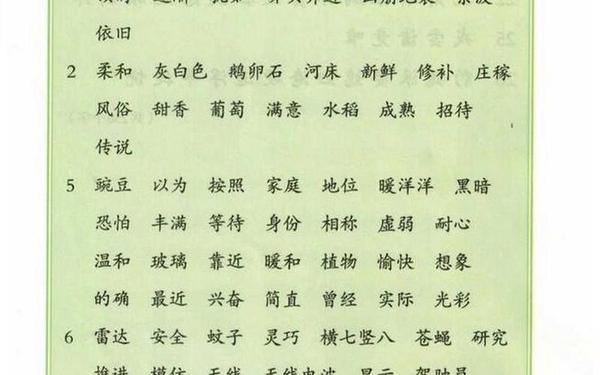 依旧
2 柔和 灰白色 鹅卵石 河床 新鲜 修补 庄稼
风俗 甜香 葡萄 满意 水稻 成熟 招待
传说
5 豌豆 以为 按照 家庭 地位 暖洋洋 黑暗
恐怕 丰满 等待 身份 相称 虚弱 耐心
温和 玻璃 靠近 暖和 植物 愉快 想象
的确 最近 兴奋 简直 曾经 实际 光彩
6 雷达 安全 蚊子 灵巧 横七竖八 苍蝇 研究
推进 模仿 天线 无线电波 显示 驾驶员